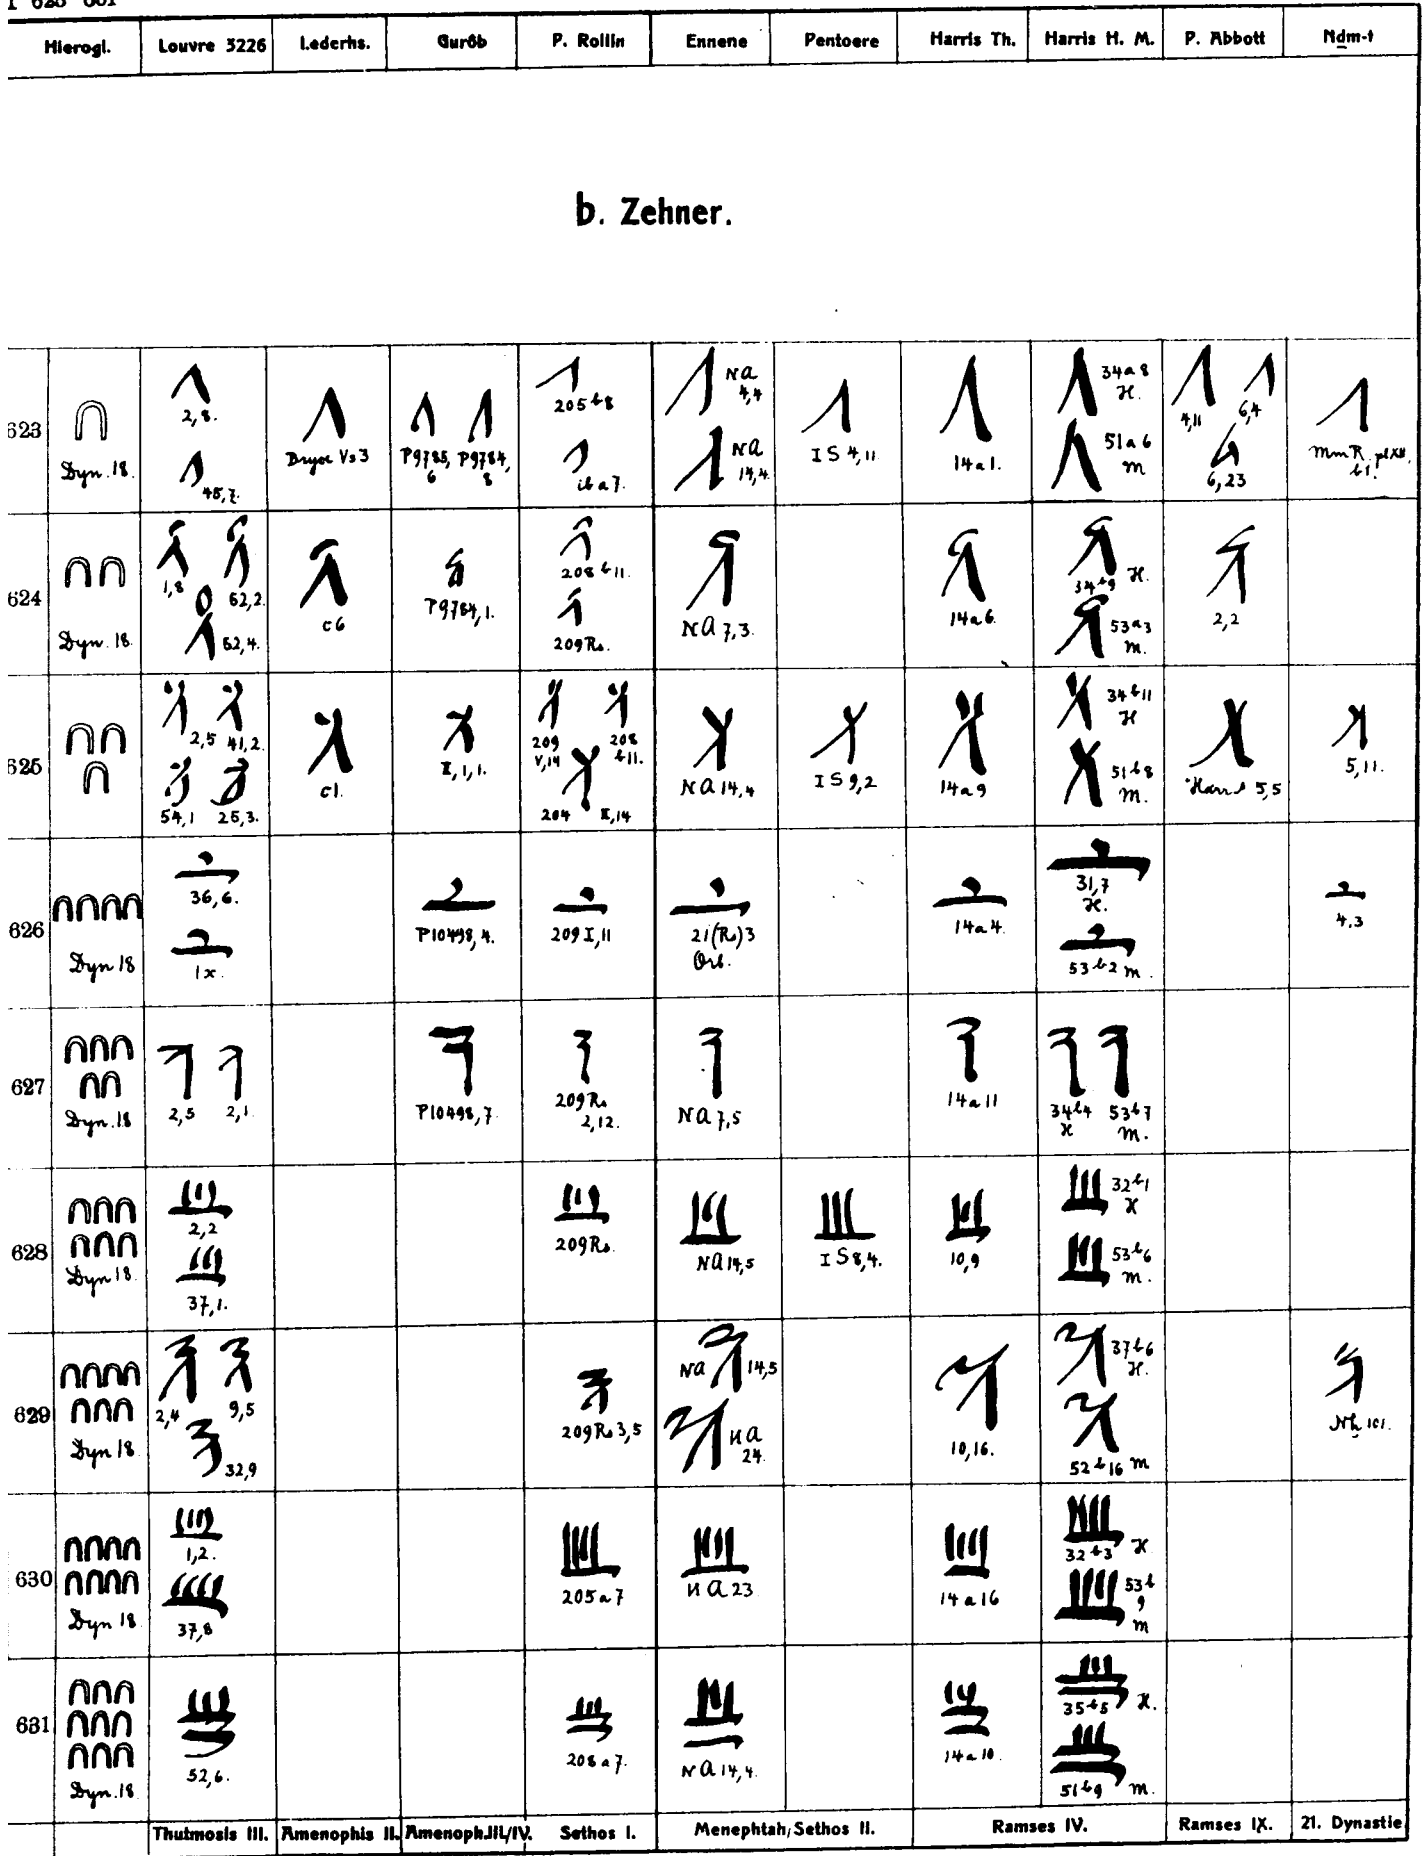 Hierogl. Louvre 3226 Lederhs. Gurôb P. Rollin Ennene Pentoere Harris Th. Harris H. M. P. Abbott Nḏm-t
b. Zehner.
623 Dyn. 18. 2,8. 45,7. Vs 3 P9785, 6 P9784, 8 205 b 8 ib a 7. NA 4,4 NA 14,4. IS 4,11 14a1. 34a8 H. 51a6 M 4,11 6,4 6,23
624 Dyn. 18. 1,8 62,2. 62,4. c6 P9784,1. 208 b 11. 209 Rs. NA 7,3. 14a6. 34b9 H. 53a3 M. 2,2
625 2,5 41,2. 54,1 25,3. c1. II,1,1. 209 V,14 208 b11. 204 II,14 NA 14,4 IS 9,2 14a9 34b11 H 51b8 M. 5,5 5,11.
626 Dyn 18 36,6. 1x. P10498,4. 209 I,11 21(Rs)3 Orb. 14a4. 31,7 H. 53b2 M. 4,3
627 Dyn. 18 2,5 2,1. P10498,7. 209 Rs 2,12. NA 7,5 14a11 34b4 H 53b7 M.
628 Dyn 18. 2,2 37,1. 209 Rs. NA 14,5 IS 8,4. 10,9 32b1 H 53b6 M.
629 Dyn 18. 2,4 9,5 32,9 209 Rs 3,5 NA 14,5 NA 24. 10,16. 37b6 H. 52b16 M Nḫ 101.
630 Dyn 18. 1,2. 37,8 205a7 NA 23 14a16 32b3 H. 53b 9 M
631 Dyn. 18 52,6. 208a7. NA 14,4. 14a10. 35b5 H. 51b9 M.
Thutmosis III. Amenophis II. Amenoph.III/IV. Sethos I. Menephtah, Sethos II. Ramses IV. Ramses IX. 21. Dynastie